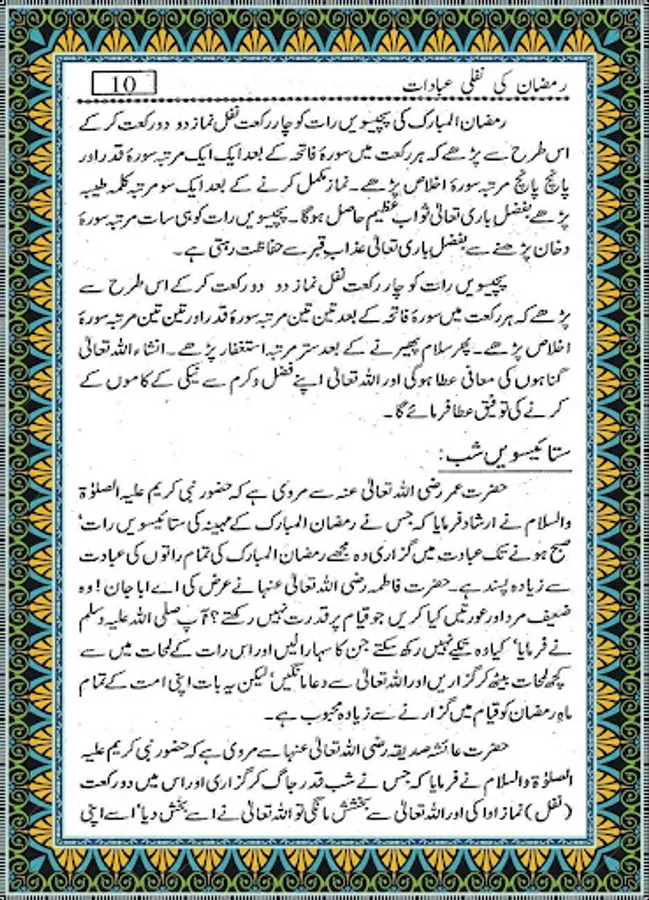 رمضان کی نفلی عبادات
10
رمضان المبارک کی پچیسویں رات کو چار رکعت نفل نماز دو دو رکعت کر کے
اس طرح سے پڑھے کہ ہر رکعت میں سورۂ فاتحہ کے بعد ایک ایک مرتبہ سورۂ قدر اور
پانچ پانچ مرتبہ سورۂ اخلاص پڑھے۔ نماز مکمل کرنے کے بعد ایک سو مرتبہ کلمہ طیبہ
پڑھے بفضل باری تعالیٰ ثواب عظیم حاصل ہوگا۔ پچیسویں رات کو ہی سات مرتبہ سورۂ
دخان پڑھنے سے بفضل باری تعالیٰ عذاب قبر سے حفاظت رہتی ہے۔
پچیسویں رات کو چار رکعت نفل نماز دو دو رکعت کر کے اس طرح سے
پڑھے کہ ہر رکعت میں سورۂ فاتحہ کے بعد تین تین مرتبہ سورۂ قدر اور تین تین مرتبہ سورۂ
اخلاص پڑھے۔ پھر سلام پھیرنے کے بعد ستر مرتبہ استغفار پڑھے۔ انشاء اللہ تعالیٰ
گناہوں کی معافی عطا ہوگی اور اللہ تعالیٰ اپنے فضل وکرم سے نیکی کے کاموں کے
کرنے کی توفیق عطا فرمائے گا۔
ستائیسویں شب:
حضرت عمر رضی اللہ تعالیٰ عنہ سے مروی ہے کہ حضور نبی کریم علیہ الصلوٰۃ
والسلام نے ارشاد فرمایا کہ جس نے رمضان المبارک کے مہینہ کی ستائیسویں رات‘
صبح ہونے تک عبادت میں گزاری وہ مجھے رمضان المبارک کی تمام راتوں کی عبادت
سے زیادہ پسند ہے۔ حضرت فاطمہ رضی اللہ تعالیٰ عنہا نے عرض کی اے ابا جان! وہ
ضعیف مرد اور عورتیں کیا کریں جو قیام پر قدرت نہیں رکھتے؟ آپ صلی اللہ علیہ وسلم
نے فرمایا‘ کیا وہ تکیے نہیں رکھ سکتے جن کا سہارا لیں اور اس رات کے لمحات میں سے
کچھ لمحات بیٹھ کر گزاریں اور اللہ تعالیٰ سے دعا مانگیں‘ لیکن یہ بات اپنی امت کے تمام
ماہِ رمضان کو قیام میں گزارنے سے زیادہ محبوب ہے۔
حضرت عائشہ صدیقہ رضی اللہ تعالیٰ عنہا سے مروی ہے کہ حضور نبی کریم علیہ
الصلوٰۃ والسلام نے فرمایا کہ جس نے شب قدر جاگ کر گزاری اور اس میں دو رکعت
(نفل) نماز ادا کی اور اللہ تعالیٰ سے بخشش مانگی تو اللہ تعالیٰ نے اسے بخش دیا‘ اسے اپنی